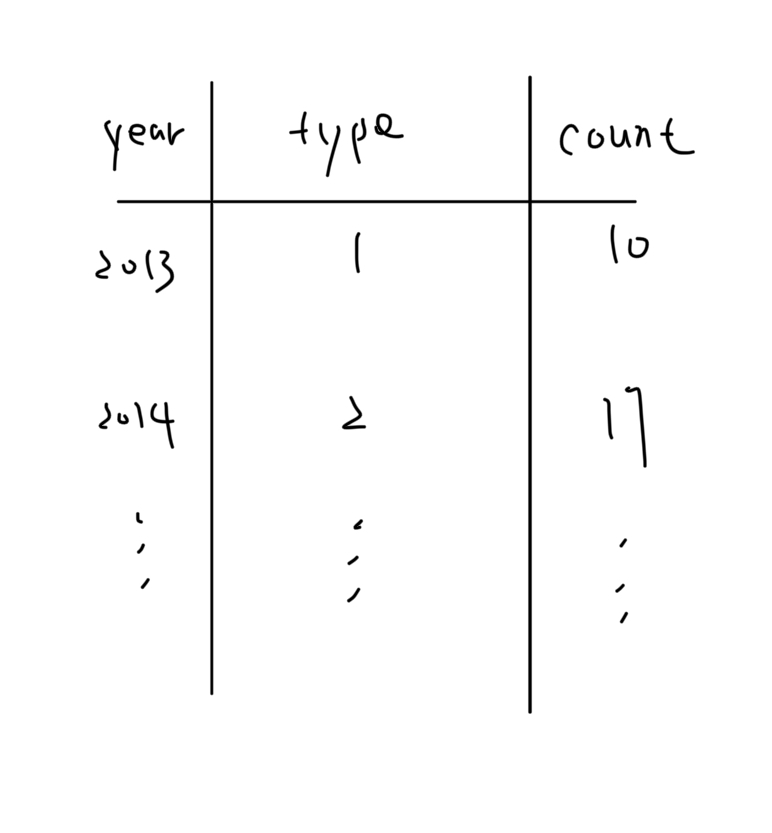 year type count
2013 1 10
2014 2 17